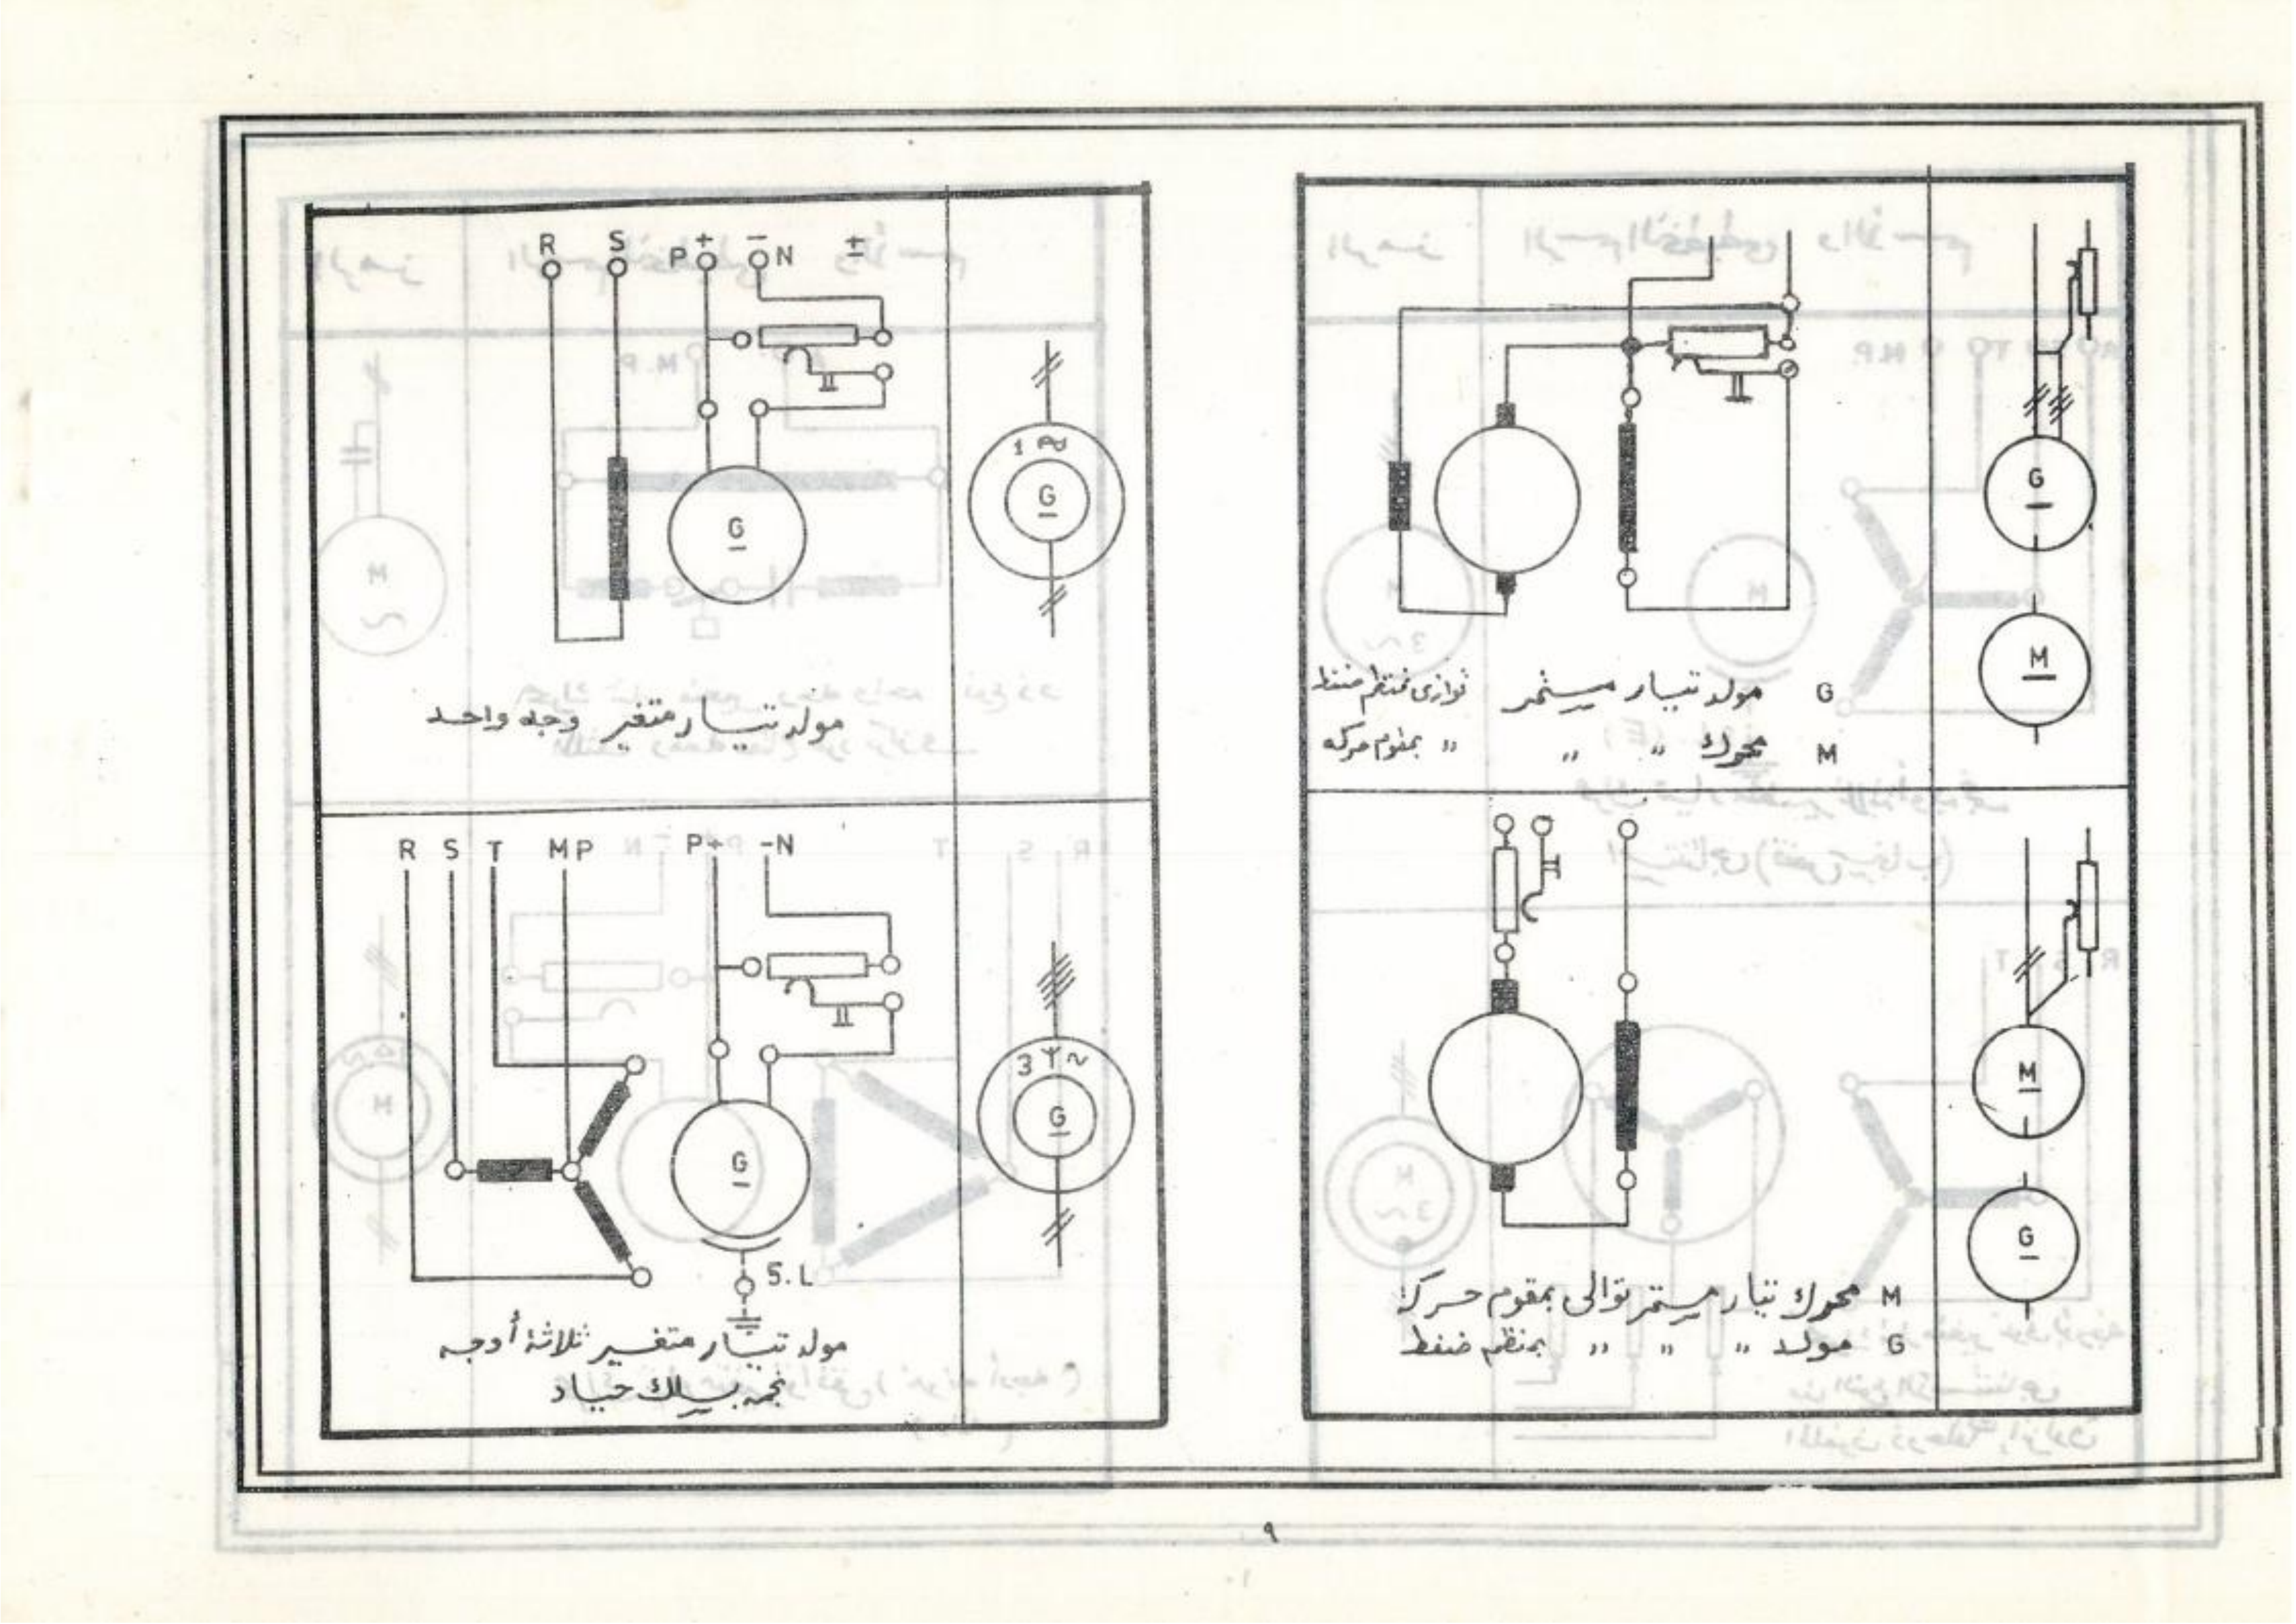 G
M
G مولد تيار مستمر توازى بمنظم ضغط
M محرك " " " بمقوم حركه
M
G
M محرك تيار مستمر توالى بمقوم حركة
G مولد " " " بمنظم ضغط
R S P + − N ±
G
1 ~
G
مولد تيار متغير وجه واحد
R S T MP P+ -N
G
S.L
3 Y ~
G
مولد تيار متغير ثلاثة أوجه
نجمه بسلك حياد
٩